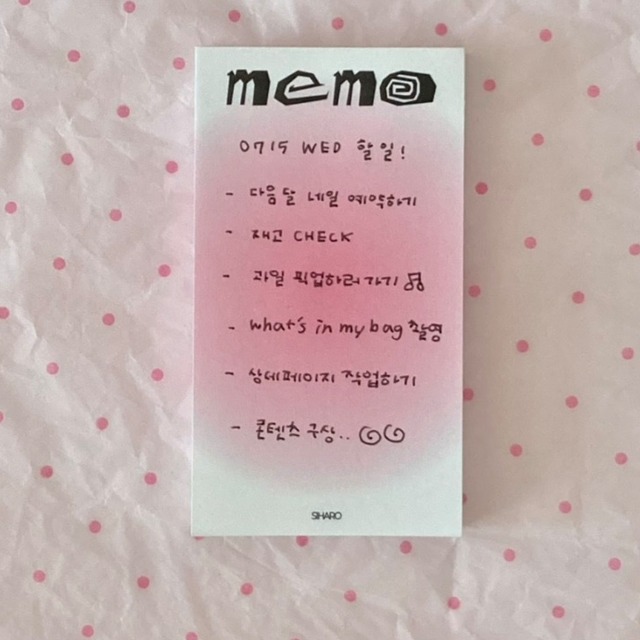 memo
0715 WED 할 일!
- 다음달 네일 예약하기
- 재고 CHECK
- 과일 픽업하러가기
- what's in my bag 촬영
- 상세페이지 작업하기
- 콘텐츠 구상..
SIHARO